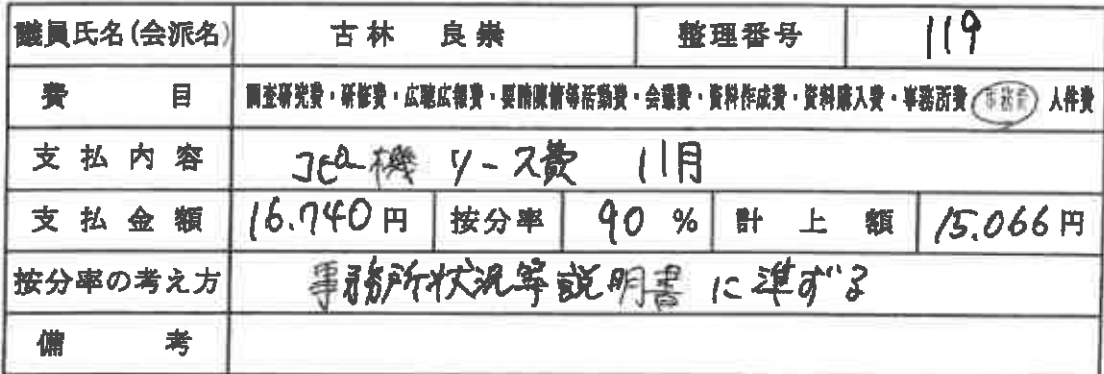 議員氏名(会派名) 古林 良崇 整理番号 119
費目 調査研究費・研修費・広聴広報費・要請陳情等活動費・会議費・資料作成費・資料購入費・事務所費 事務費 人件費
支払内容 コピー機 リース費 11月
支払金額 16.740円 按分率 90% 計上額 15.066円
按分率の考え方 事務所状況等説明書に準ずる
備考